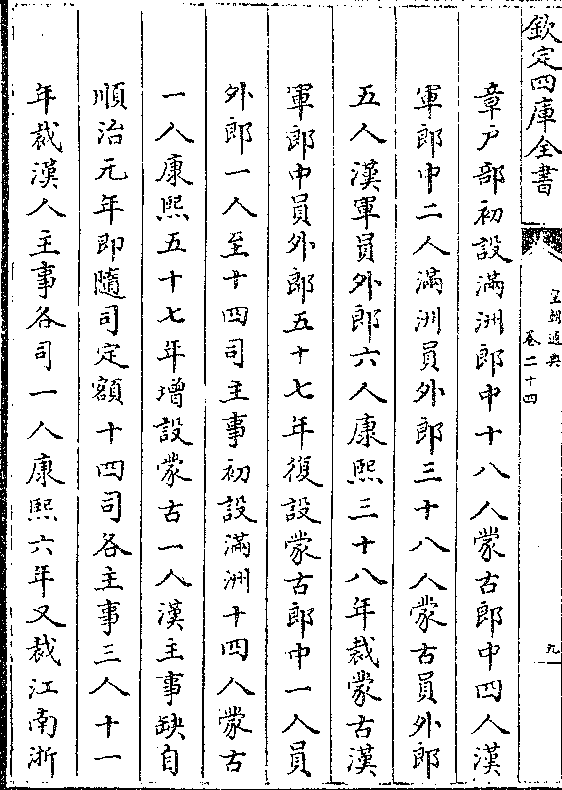 欽定四庫全書
皇朝通典
卷二十四
九
章戸部初設滿洲郎中十八人蒙古郎中四人漢
軍郎中二人滿洲員外郎三十八人蒙古員外郎
五人漢軍員外郎六人康熙三十八年裁蒙古漢
軍郎中員外郎五十七年復設蒙古郎中一人員
外郎一人至十四司主事初設滿洲十四人蒙古
一人康熙五十七年增設蒙古一人漢主事缺自
順治元年即隨司定額十四司各主事三人十一
年裁漢人主事各司一人康熙六年又裁江南浙